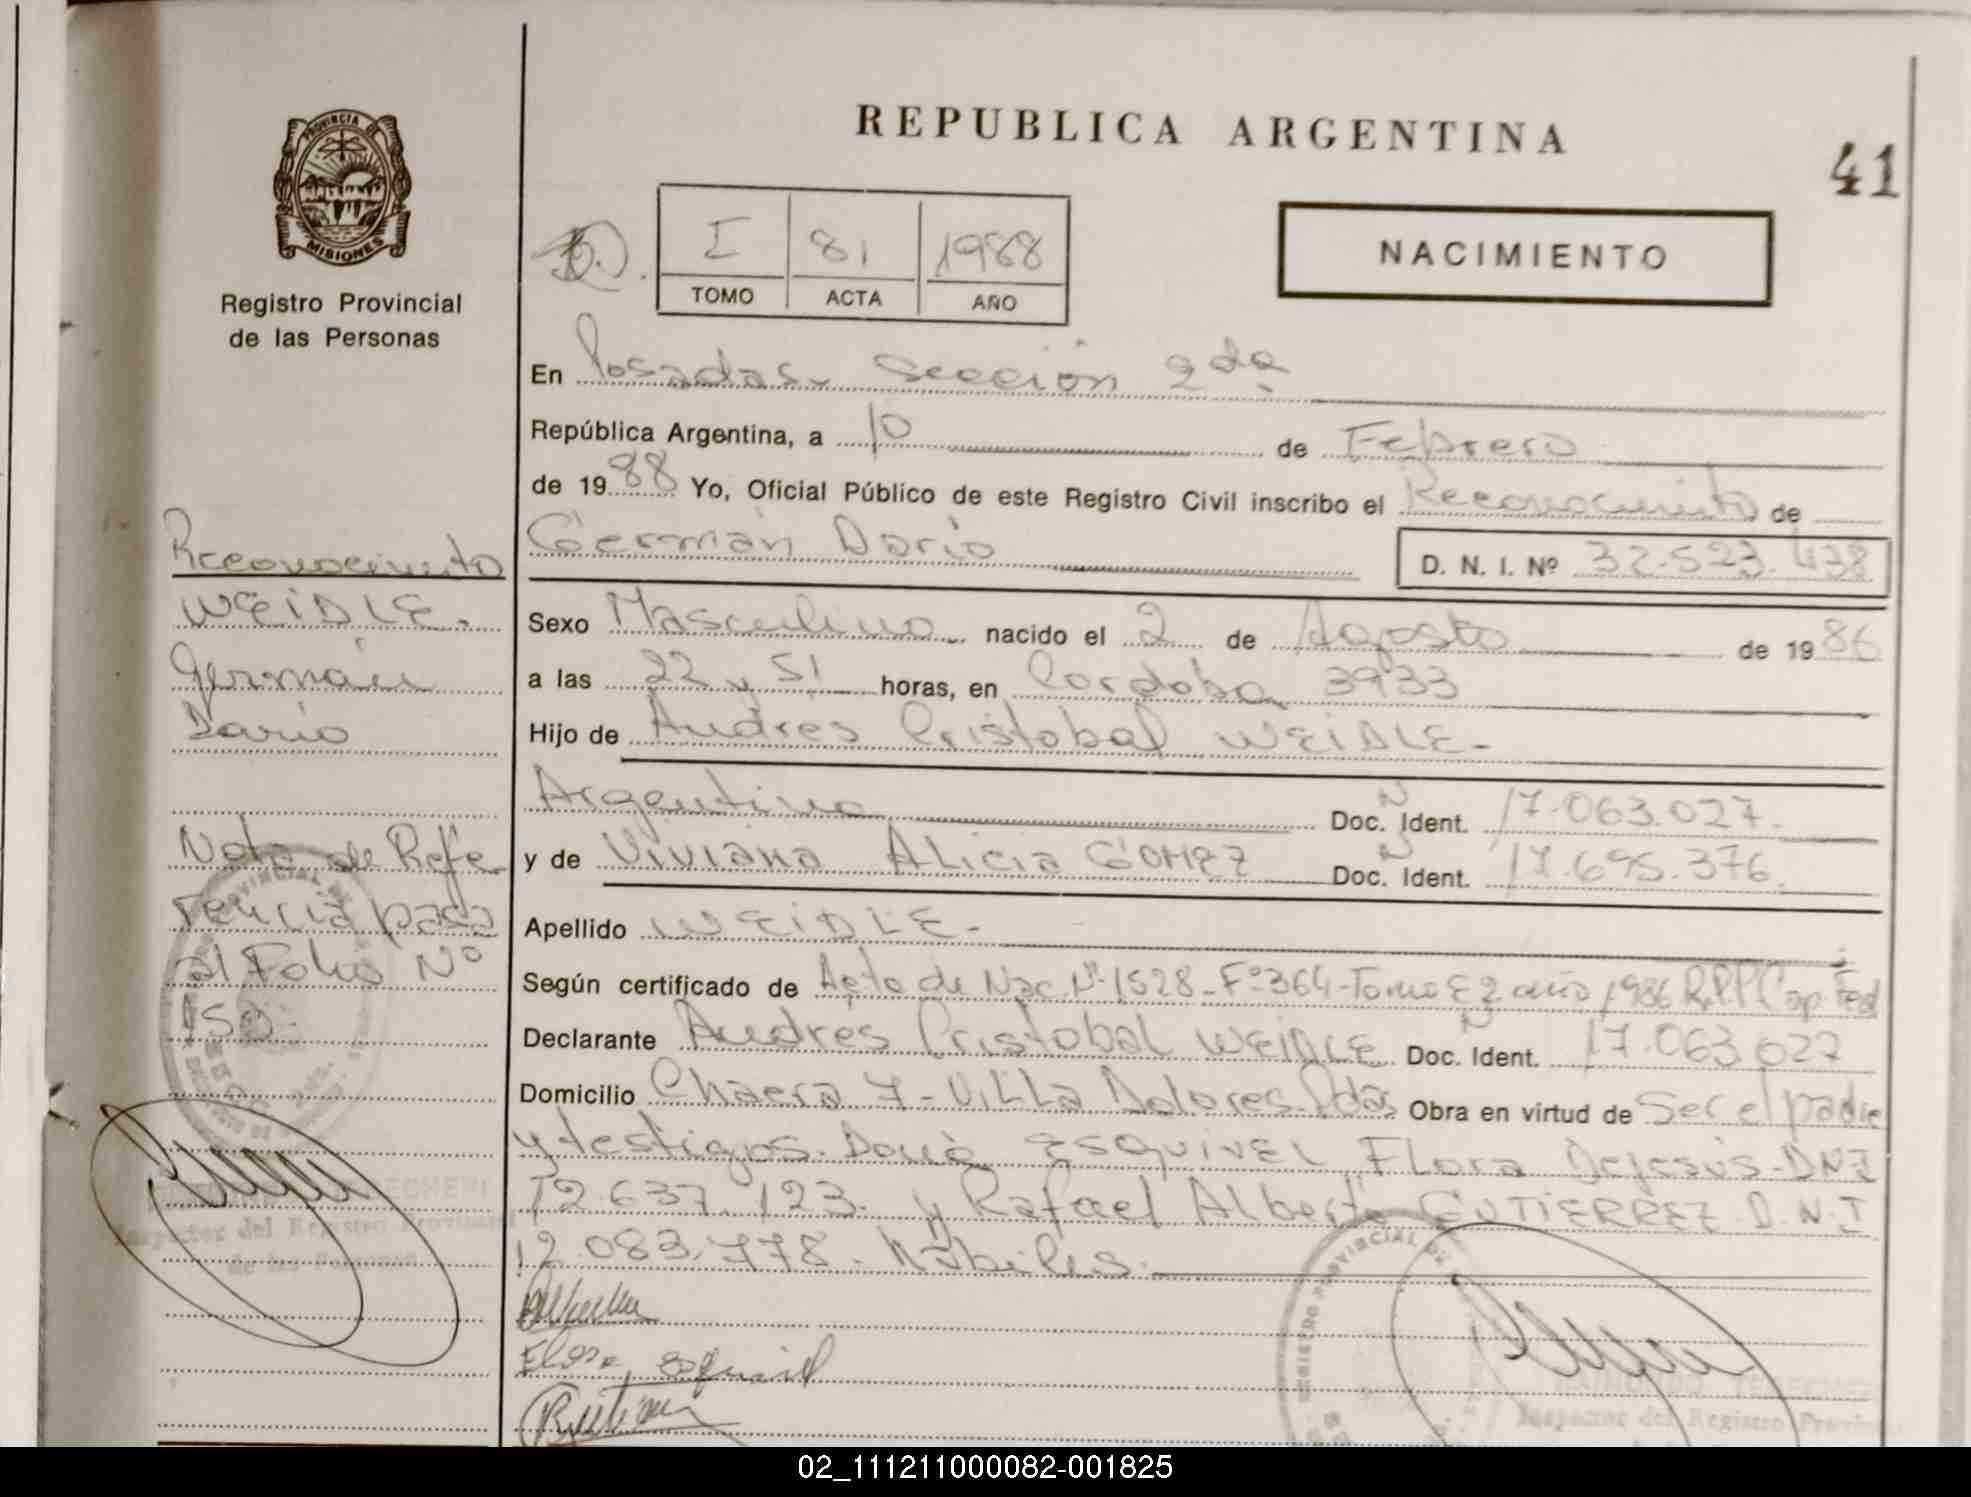 REPUBLICA ARGENTINA
41
PROVINCIA DE
MISIONES
Registro Provincial
de las Personas
I 81 1988
TOMO ACTA AÑO
NACIMIENTO
En Posadas. Sección 2da
República Argentina, a 10 de Febrero
de 1988 Yo, Oficial Público de este Registro Civil inscribo el Reconocimiento de
Germán Dario D. N. I. Nº 32.523.438
Sexo Masculino nacido el 2 de Agosto de 1986
a las 22 y 51 horas, en Cordoba 3933
Hijo de Andrés Cristobal WEIDLE.-
Argentino Doc. N Ident. 17.063.027.
y de Viviana Alicia GOMEZ Doc. N Ident. 17.695.376.
Apellido WEIDLE.-
Según certificado de Acta de Nac. Nº 1528-Fº364-Tomo E2 año 1986 R.P.P Cap. Fed
Declarante Andrés Cristobal WEIDLE Doc. N Ident. 17.063.027
Domicilio Chacra 7-Villa Dolores-Pdas Obra en virtud de Ser el padre
y testigos. Doña ESQUIVEL Flora Dejesús-DNI
12.637.123. y Rafael Alberto GUTIERREZ. D.N.I
12.083.778. Hábiles.
Reconocimiento
WEIDLE.
Germán
Dario
Nota de Refe
rencia pasa
al Folio Nº
150.-
Inspector del Registro Provincial
de las Personas
REGISTRO PROVINCIAL DE
Inspector del Registro Provin
02_111211000082-001825